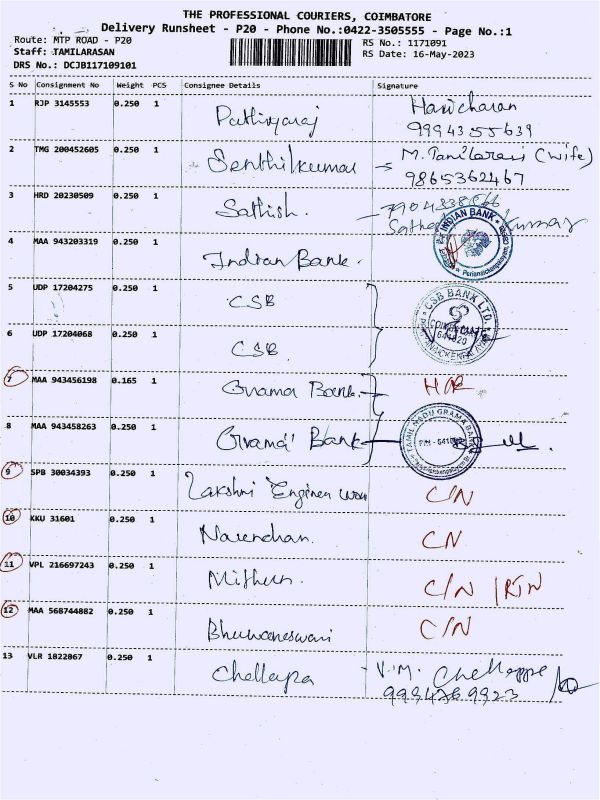 THE PROFESSIONAL COURIERS, COIMBATORE
Delivery Runsheet - P20 - Phone No.:0422-3505555 - Page No.:1
Route: MTP ROAD - P20
RS No.: 1171091
Staff: TAMILARASAN
RS Date: 16-May-2023
DRS No.: DCJB117109101
S No Consignment No Weight PCS Consignee Details Signature
1 RJP 3145553 0.250 1 Pathiyaraj Haricharan
9994355639
2 TMG 200452605 0.250 1 Senthilkumar M. Tamilarasi (wife)
9865362467
3 HRD 20230509 0.250 1 Sathish.
INDIAN BANK
4 MAA 943203319 0.250 1 Indian Bank.
5 UDP 17204275 0.250 1 CSB
CSB BANK LTD.
6 UDP 17204068 0.250 1 CSB.
7 MAA 943456198 0.165 1 Grama Bank
8 MAA 943458263 0.250 1 Grama Bank
TAMIL NADU GRAMA BANK
9 SPB 30034393 0.250 1 Lakshmi C/N
10 KKU 31601 0.250 1 Narendran. CN
11 VPL 216697243 0.250 1 Mithun. C/N / RTN
12 MAA 568744882 0.250 1 Bhuvaneswari C/N
13 VLR 1822867 0.250 1 Chellapa V.M. Chellappa
9994769923